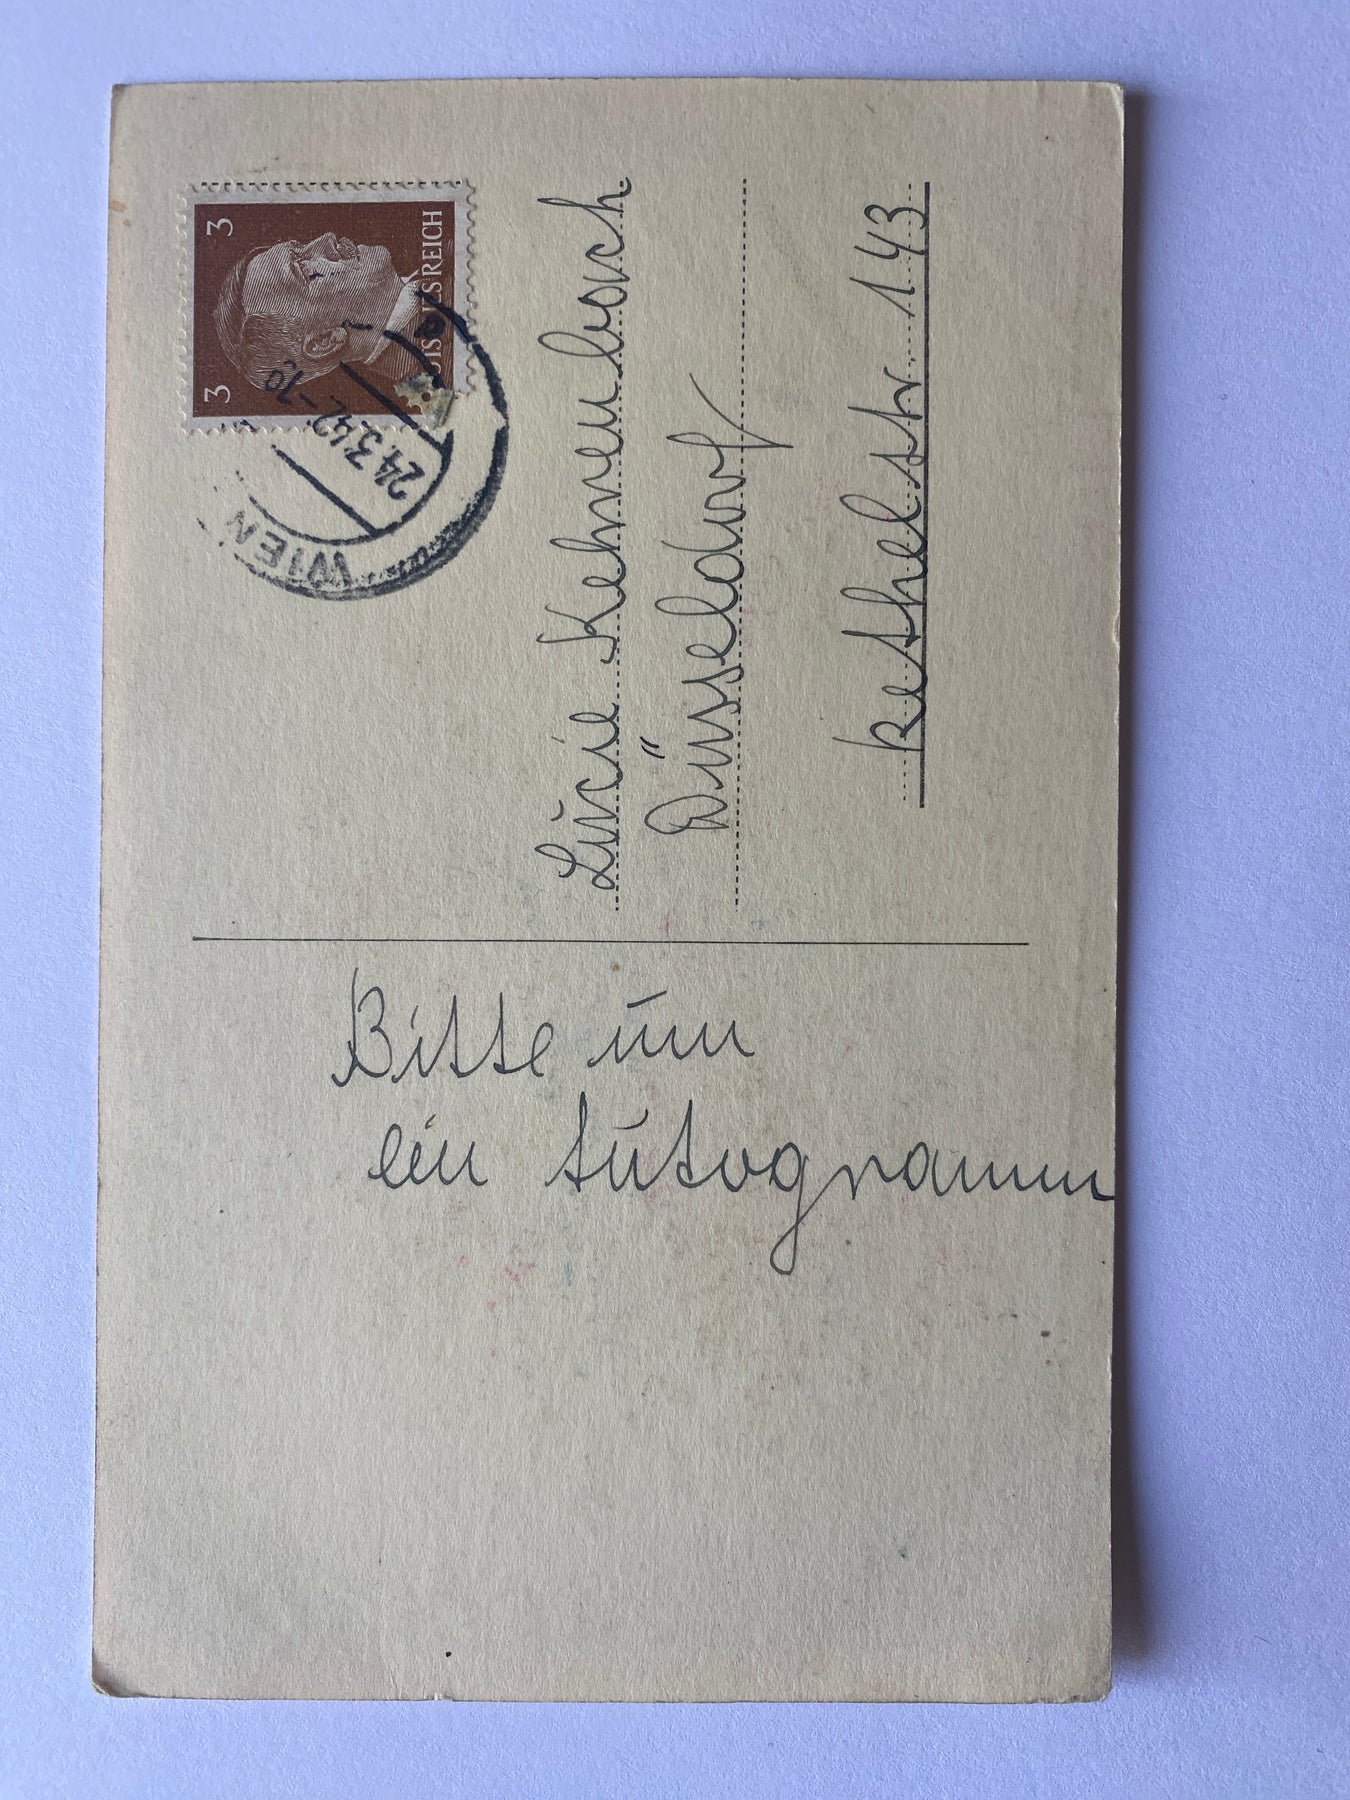 3 3
DEUTSCHES REICH
WIEN
24.3.42.-10
Lucie Kehrenbach
Düsseldorf
Rethelstr. 143
Bitte um
ein Autogramm